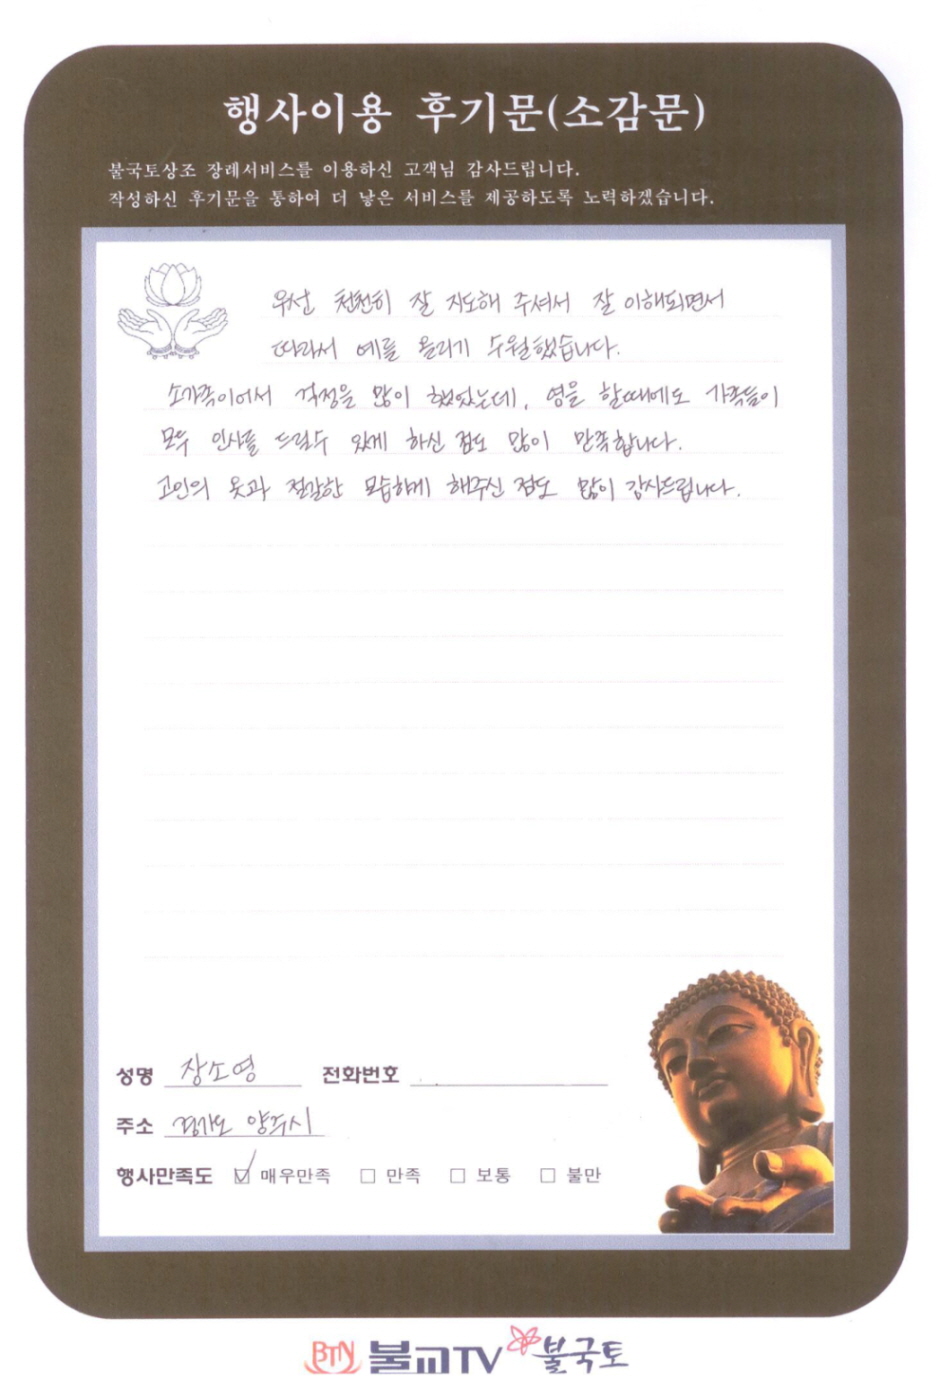 행사이용 후기문(소감문)
불국토상조 장례서비스를 이용하신 고객님 감사드립니다.
작성하신 후기문을 통하여 더 낳은 서비스를 제공하도록 노력하겠습니다.
우선 천천히 잘 지도해 주셔서 잘 이해되면서
따라서 예를 올리기 수월했습니다.
소가족이어서 걱정을 많이 했었는데, 염을 할때에도 가족들이
모두 인사를 드릴수 있게 하신 점도 많이 만족합니다.
고인의 옷과 정갈한 모습하게 해주신 점도 많이 감사드립니다.
성명 장소영 전화번호
주소 경기도 양주시
행사만족도 ☑ 매우만족 □ 만족 □ 보통 □ 불만
BTN 불교TV 불국토